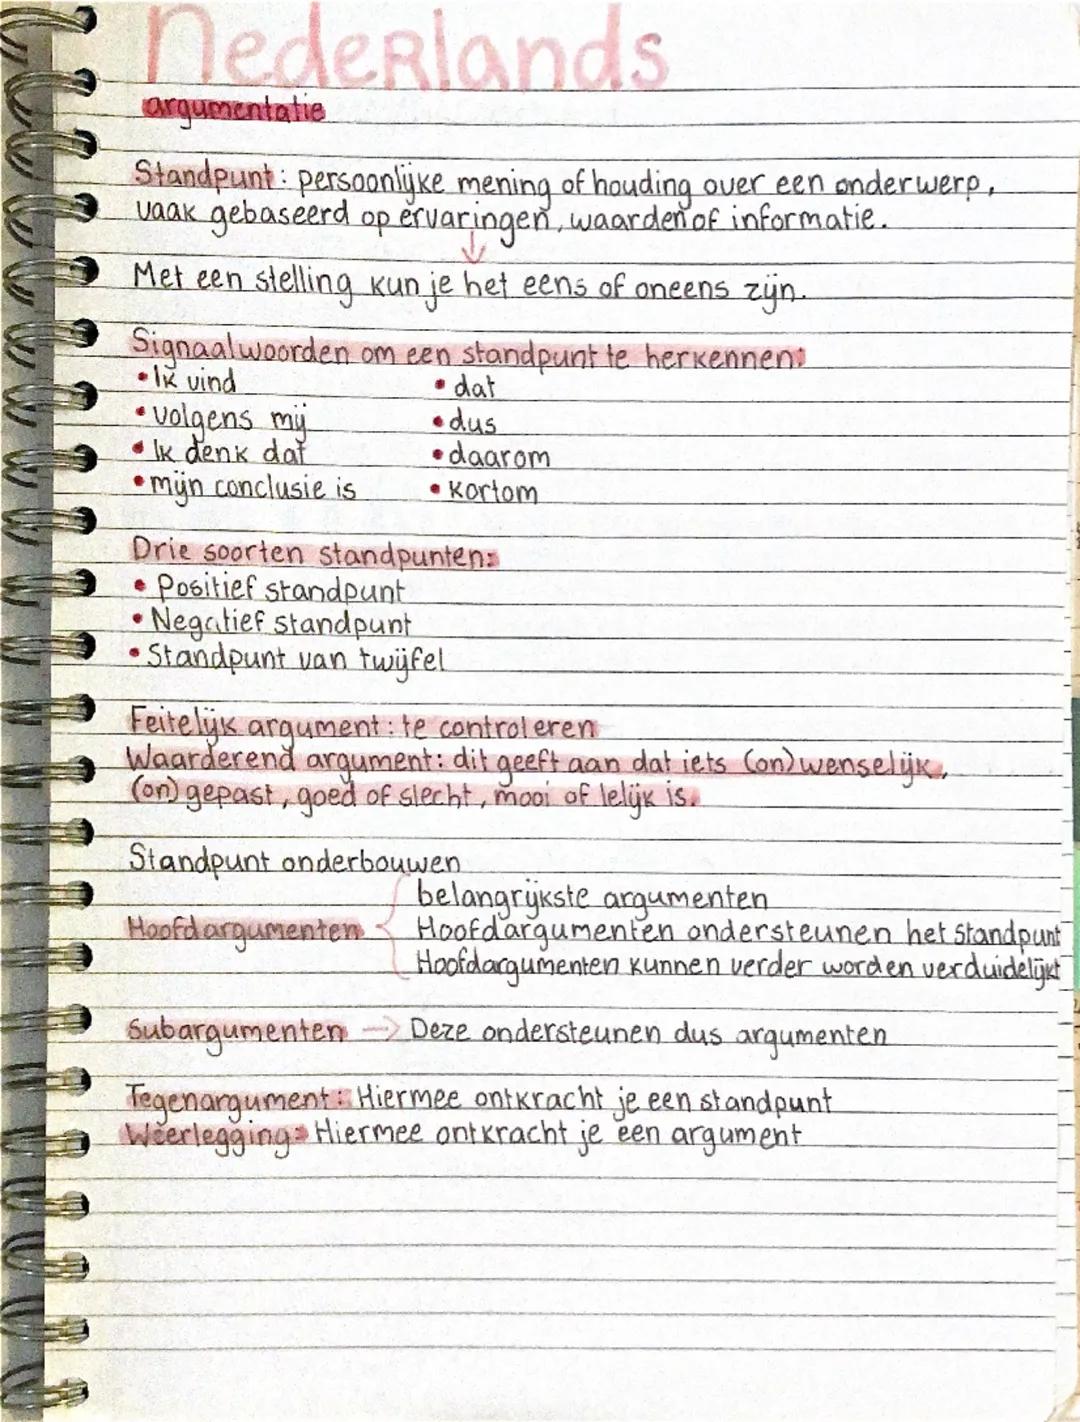 Nederlands
argumentatie
Standpunt: persoonlijke mening of houding over een onderwerp,
vaak gebaseerd op ervaringen, waarden of informatie.
↓
Met een stelling kun je het eens of oneens zijn.
Signaalwoorden om een standpunt te herkennen:
• Ik vind • dat
• volgens mij • dus
• Ik denk dat • daarom
• mijn conclusie is • kortom
Drie soorten standpunten:
• Positief standpunt
• Negatief standpunt
• Standpunt van twijfel
Feitelijk argument: te controleren
Waarderend argument: dit geeft aan dat iets (on)wenselijk,
(on)gepast, goed of slecht, mooi of lelijk is.
Standpunt onderbouwen
belangrijkste argumenten
Hoofdargumenten { Hoofdargumenten ondersteunen het standpunt
Hoofdargumenten kunnen verder worden verduidelijkt
Subargumenten → Deze ondersteunen dus argumenten
Tegenargument: Hiermee ontkracht je een standpunt
Weerlegging: Hiermee ontkracht je een argument